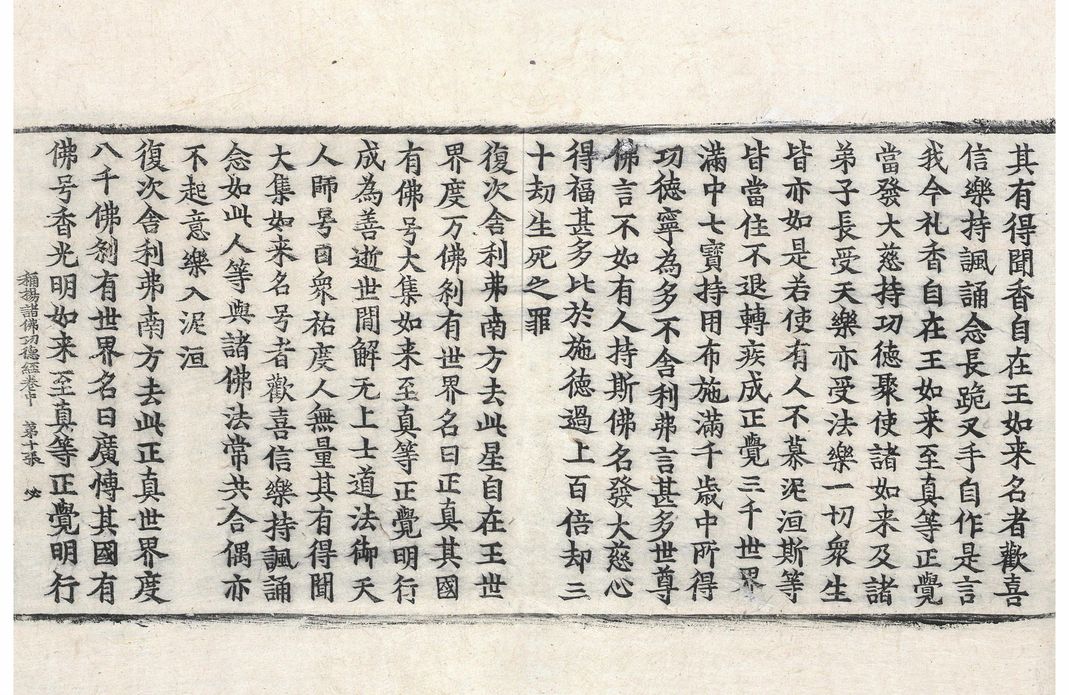 其有得聞香自在王如来名者歡喜
信樂持諷誦念長跪叉手自作是言
我今礼香自在王如来至真等正覺
當發大慈持功德聚使諸如来及諸
弟子長受天樂亦受法樂一切衆生
皆亦如是若使有人不慕泥洹斯等
皆當住不退轉疾成正覺三千世界
滿中七寶持用布施滿千歲中所得
功德寧為多不舍利弗言甚多世尊
佛言不如有人持斯佛名發大慈心
得福甚多比於施德過上百倍却三
十劫生死之罪
復次舍利弗南方去此星自在王世
界度万佛刹有世界名曰正真其國
有佛号大集如来至真等正覺明行
成為善逝世間解无上士道法御天
人師号曰衆祐度人無量其有得聞
大集如来名号者歡喜信樂持諷誦
念如此人等與諸佛法常共合偶亦
不起意樂入泥洹
復次舍利弗南方去此正真世界度
八千佛刹有世界名曰廣愽其國有
佛号香光明如来至真等正覺明行
稱揚諸佛功德經卷中 第十張 必